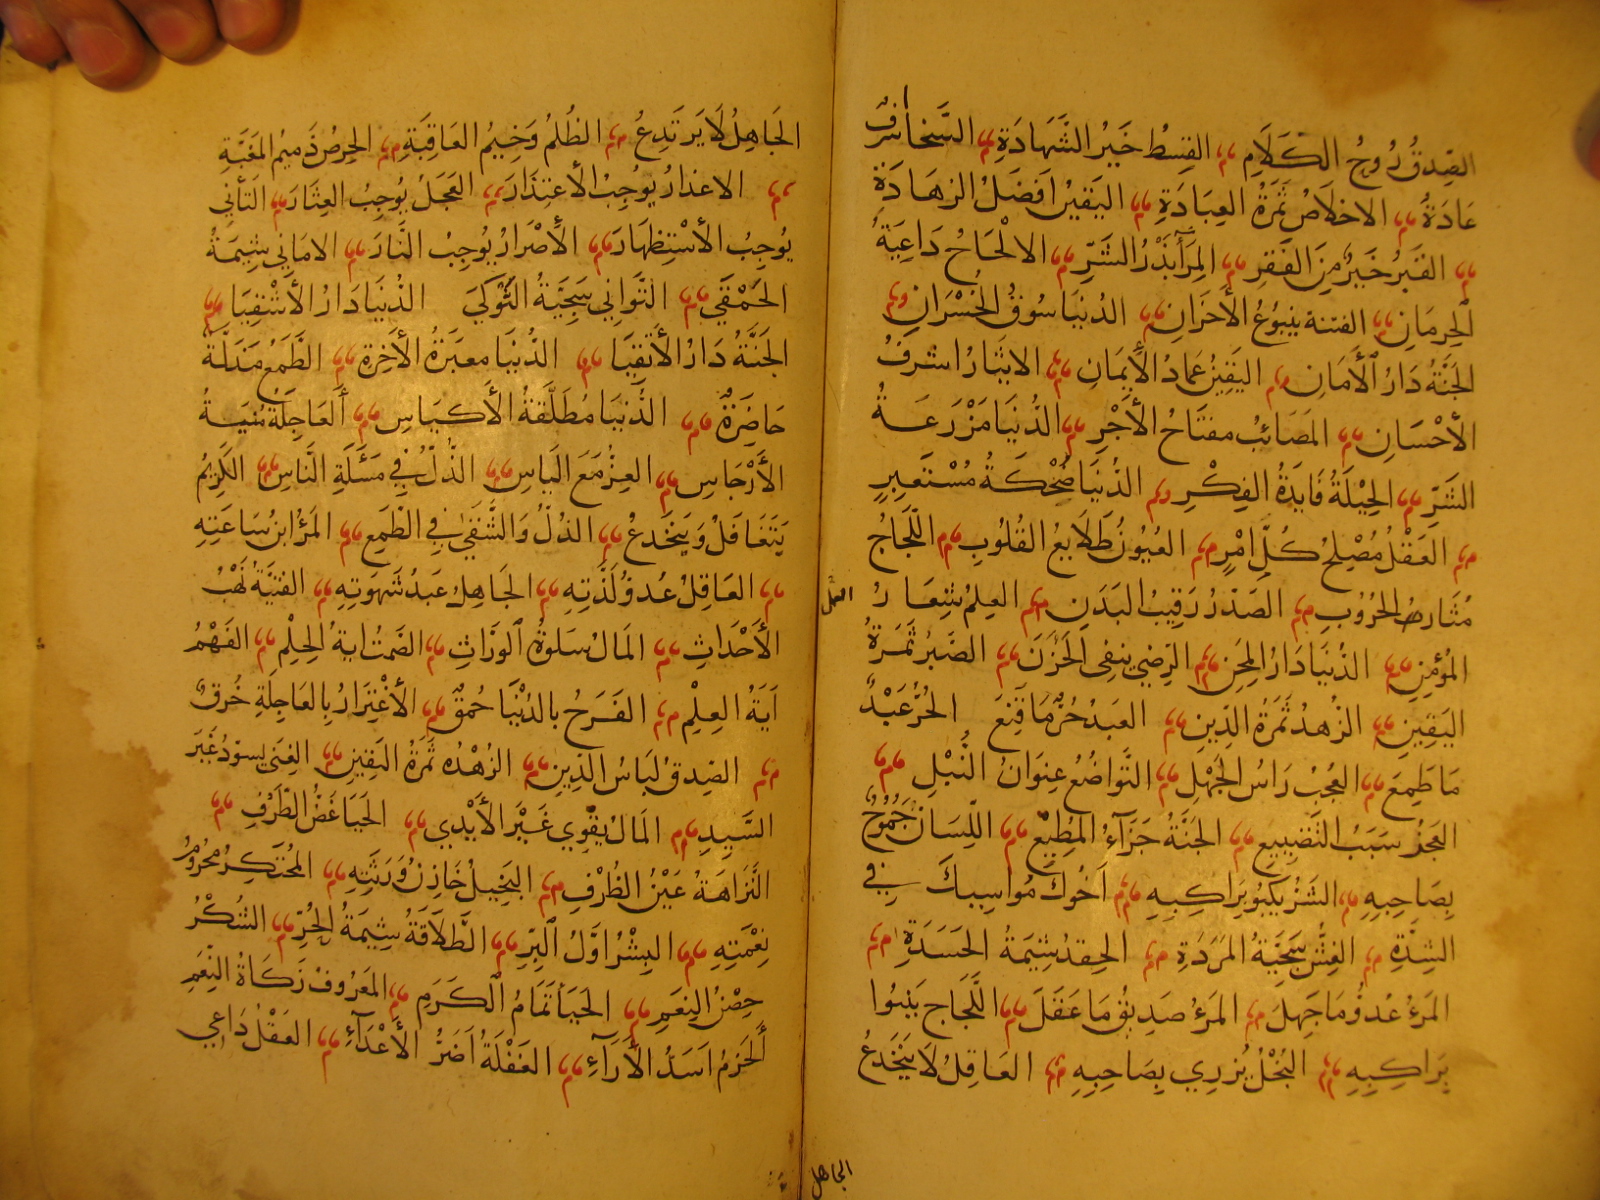 الصِدقُ رُوحُ الكَلَامِ القِسطُ خَيرُ الشَّهَادَةِ السَّخَا اشرفُ
عَادَةٌ الاخلَاصُ ثَمَرَةُ العِبَادَةِ اليَقينُ اَفضَلُ الزهَادَةِ
القَبرُ خَيرٌ مِنَ الفَقرِ المِرَآءُ بَذْرُ الشَّرِّ الالْحَاحُ دَاعِيَةُ
الحِرمَانِ الفتنة ينبُوعُ الأَحزَانِ الدُنيَا سُوقُ الخُسْرَانِ
الجَنَّةُ دَارُ الأَمَانِ اليَقِينُ عِمَادُ الأِيمَانِ الايثَارُ اشرَفُ
الأحْسَانِ المَصَائبُ مفتَاحُ الأَجْرِ الدُنيَا مَزْرَعَةُ
الشَّرِّ الحِيْلَةُ فَايِدَةُ الفِكْرِ الدُنيَا ضُحْكَةُ مُسْتَعبِرٍ
العَقْلُ مُصْلِحُ كُلِّ امْرٍ العُيُونُ طَلَايعُ القُلُوبِ اللّجَاجُ
مُثَارُ الحُرُوبِ الصَّدْرُ رَقِيبُ البَدَنِ العِلمُ شِعَارُ
المُؤمِنِ الدُنيَا دَارُ المِحَنِ الرِضي ينفِى الحَزَنَ الصَّبرُ ثَمَرَةُ
اليَقِينِ الزُهدُ ثمَرَةُ الدِينِ العَبدُ حُرٌّ مَا قَنِعَ الحُرُّ عَبْدٌ
مَا طَمِعَ العُجبُ رَاسُ الجَهْلِ التَّوَاضُعُ عِنوَانُ النُبْلِ
العَجزُ سَبَبُ التَضِييعِ الجَنَّةُ جَزَآءُ المُطِيْعِ اللِّسَانُ جَمُوحٌ
بِصَاحِبِهِ الشَرُّ يَكبُو بِرَاكِبِهِ اَخُوكَ مُوَاسِيكَ فِي
الشِدَّةِ الغِشُّ سَجِيَّةُ المَرَدَةِ الحِقدُ شِيمَةُ الحَسَدَةِ
المَرءُ عَدُوُّ مَا جَهِلَ المَرءُ صَدِيقُ مَا عَقَلَ اللَّجَاج يَنبُوا
بِرَاكِبِهِ البُخْلُ يُزرِي بِصَاحِبِهِ العَاقِلُ لَا يَنخَدعُ
الجاهل
الجَاهِلُ لَا يَرتَدِعُ الظُلمُ وَخِيمُ العَاقِبَةِ الحِرصُ ذَمِيمُ المَغَبَّةِ
الاعذارُ يُوجِبُ الأعتِذَارَ العَجَلُ يُوجِبُ العِثَارَ التَأنِّي
يُوجِبُ الأسْتِظهَارَ الأِصْرارُ يُوجِبُ النَّارَ الامَانِي شِيمَةُ
الحَمْقَي التَّوَانِي سَجِيَّةُ النَّوْكَيَ الدُنيَا دَارُ الأشْقِيَا
الجَنَّةُ دَارُ الأَتقِيَا الدُنيَا معبَرَةُ الأخِرَةِ الطَمَعُ مَذَلَّةٌ
حَاضِرَةٌ الدُنيَا مُطَلَّقَةُ الأَكيَاسِ العَاجِلَةُ مُنيَةُ
الأَرْجَاسِ العِزُّ مَعَ اليَاسِ الذُلُّ فِي مَسَئَلَةِ النَاسِ الكَرِيمُ
يَتَغَافَلُ وَيَنخَدِعُ الذُلُّ وَالشَّقَى فِي الطَمِعِ المَرءُ ابنُ سَاعَتِهِ
العَاقِلُ عَدُوُّ لَذَّتِهِ الجَاهِلُ عَبدُ شَهوَتِهِ القنيَةُ نَهْبُ
الأَحْدَاثِ المَالُ سَلوَةُ الوَرَّاثِ الصَّمتُ ايَةُ الحِلْمِ الفَهْمُ
آيَةُ العِلْمِ الفَرَحُ بالدُنْيَا حُمقٌ الأغْتِرَارُ بِالعَاجِلَةِ خُرقٌ
الصِدقُ لِبَاسُ الدِينِ الزُهْدُ ثَمَرَةُ اليَقِينِ الغِنَى يسوّدُ غَيرَ
السَّيدِ المَالُ يُقَوِي غَيْرَ الأَيِّدِ الحَيَا غَضُّ الطَّرفِ
النَزَاهَةُ عَيْنُ الظَرْفِ البَخِيلُ خَازِنُ وَرَثَتِهِ المُحتَكِرُ مَحرُومُ
نِعْمَتِهِ البِشْرُ اوَّلُ البِرِّ الطَلَاقَةُ شِيمَةُ الحُرِّ الشُكْرُ
حِصْنُ النِعَمِ الحَيَا تَمَامُ الكَرَمِ المَعْرُوفُ زَكَاةُ النِعَمِ
الحَزمُ اَسَدُّ الأَرَآءِ الغَفْلَةُ اَضَرُّ الأَعْدَآءِ العَقْلُ دَاعِي